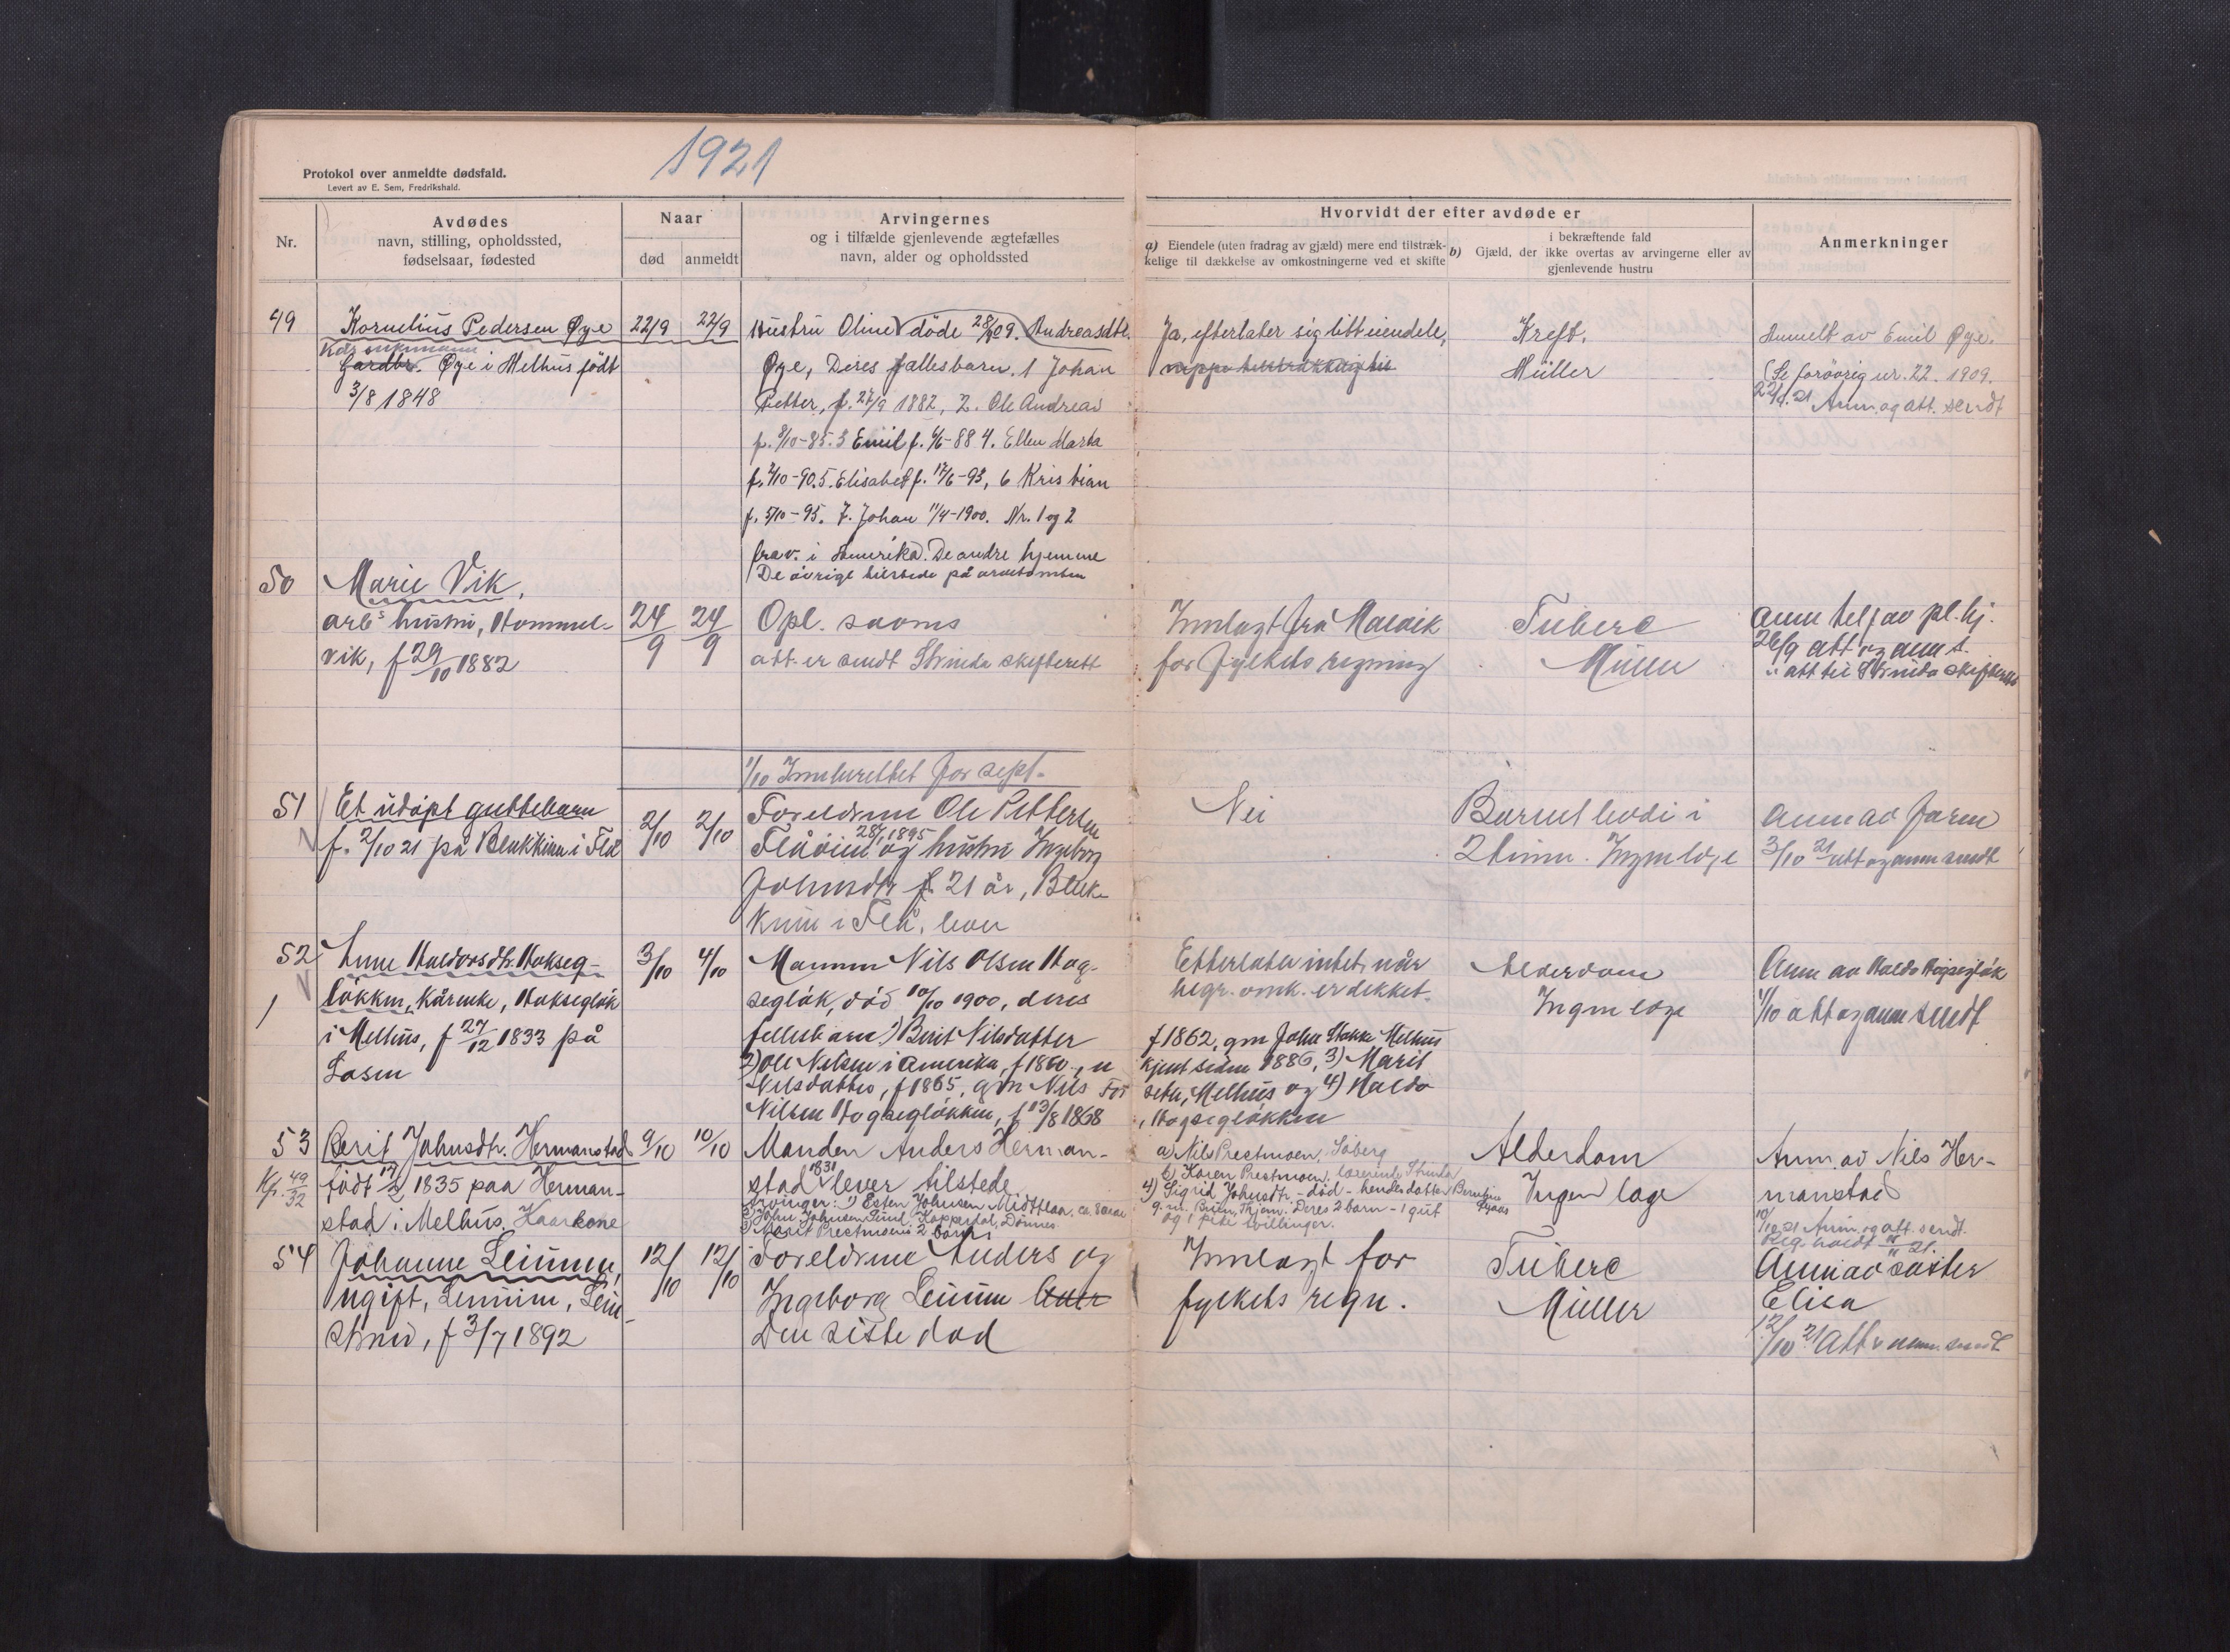 1921
Protokol over anmeldte dødsfald.
Levert av E. Sem, Fredrikshald.
Nr.
Avdødes
navn, stilling, opholdssted,
fødselsaar, fødested
Naar
død
anmeldt
Arvingernes
og i tilfælde gjenlevende ægtefælles
navn, alder og opholdssted
Hvorvidt der efter avdøde er
a) Eiendele (uten fradrag av gjæld) mere end tilstræk-
kelige til dækkelse av omkostningerne ved et skifte
b) Gjæld, der i bekræftende fald
ikke overtas av arvingerne eller av
gjenlevende hustru
Anmerkninger
49
Kornelius Pedersen Øye
Gardbr. Øye i Melhus født
3/8 1848
22/9
22/9
Hustru Oline døde 28/ 09. Andreasdtr.
Øye, Deres fællesbarn. 1 Johan
Petter, f. 27/9 1882, 2. Ole Andreas
f. 8/10-85. 3 Emil f. 6/6-88 4. Ellen Marta
f. 2/10-90. 5. Elisabet f. 17/6-93, 6 Kristian
f. 5/10-95. 7. Johan 11/4-1900. Nr. 1 og 2
frav. i Amerika. De andre hjemme
De övrige tilstede på
Ja, efterlater sig litt eiendele,
Kreft.
Müller
Anmelt av Emil Øye.
(Se forøvrig nr. 22. 1909.
22/9.21 Anm. og att. sendt
50
Marie Vik,
arbs hustru, Hommel-
vik, f 29/10 1882
24/9
24/9
Opl. savnes
att. er sendt Strinda skifterett
Innlagt fra Malvik
for fylkets regning
Tuberc
Müller
anm telf av pl. hj.
26/9 att og anm s.
" att til Strinda skifterett
1/10 Innberettet for sept.
51
Et udöpt guttebarn
f. 2/10 21 på Blekkinn i Flå
2/10
2/10
Foreldrene Ole Pettersen
Flåöien 28/ 1895 og hustru Ingeborg
Johnsdtr f. 21 år, Blek-
kinn i Flå, lever
Nei
Barnet levde i
2 timer. Ingen læge
Anm av faren
3/10 21 att og anm sendt
52
Anne Haldorsdtr. Hokseg-
lökken, Kårenke, Hokseglök
i Melhus, f 27/12 1833 på
Losen
3/10
4/10
Mannen Nils Olsen Hog-
seglök, död 10/10 1900, deres
fellesbarn 1) Berit Nilsdatter
f 1862, gm John Stokke Melhus
2) Ole Nilsen i Amerika, f 1860, u
kjent siden 1886, 3) Marit
Nilsdatter, f 1865, gm Nils For
seth, Melhus og 4) Haldo
Nilsen Hogseglökken, f 13/8 1868
, Hogseglökken
Etterlater intet, når
begr. omk. er dekket.
Alderdom
Ingen læge
Anm av Haldo Hogseglök
4/10 att og anm sendt
53
Kfr. 49/32
Berit Johnsdtr. Hermanstad
født 17/2 1835 paa Herman-
stad i Melhus. Kaarkone
9/10
10/10
Manden Anders Herman-
stad 1831 lever tilstede
Arvinger: 1) Esten Johnsen Midttløa, ca. 80 aar
2) John Johnsen Lund, Kopperdal,
3) Marit Prestmoens 2 barn:
a) Nils Prestmoen, Søberg
b) Karen Prestmoen, lærerinde Strinda
4) Sigrid Johnsdtr. - død - hendes datter
g. m. Trjem. Deres 2 barn - 1 gut
og 1 pike tvillinger.
Alderdom
Ingen læge
Anm. av Nils Her-
manstad
10/10 21 Anm. og att. sendt
54
Johanne Leinum,
ugift, Leinum, Lein-
strand, f 3/7 1892
12/10
12/10
Foreldrene Anders og
Ingeborg Leinum
Den siste död
Innlagt for
fylkets regn.
Tuberc
Müller
Anm av söster
Elisa
12/10 21 Att & anm. sendt